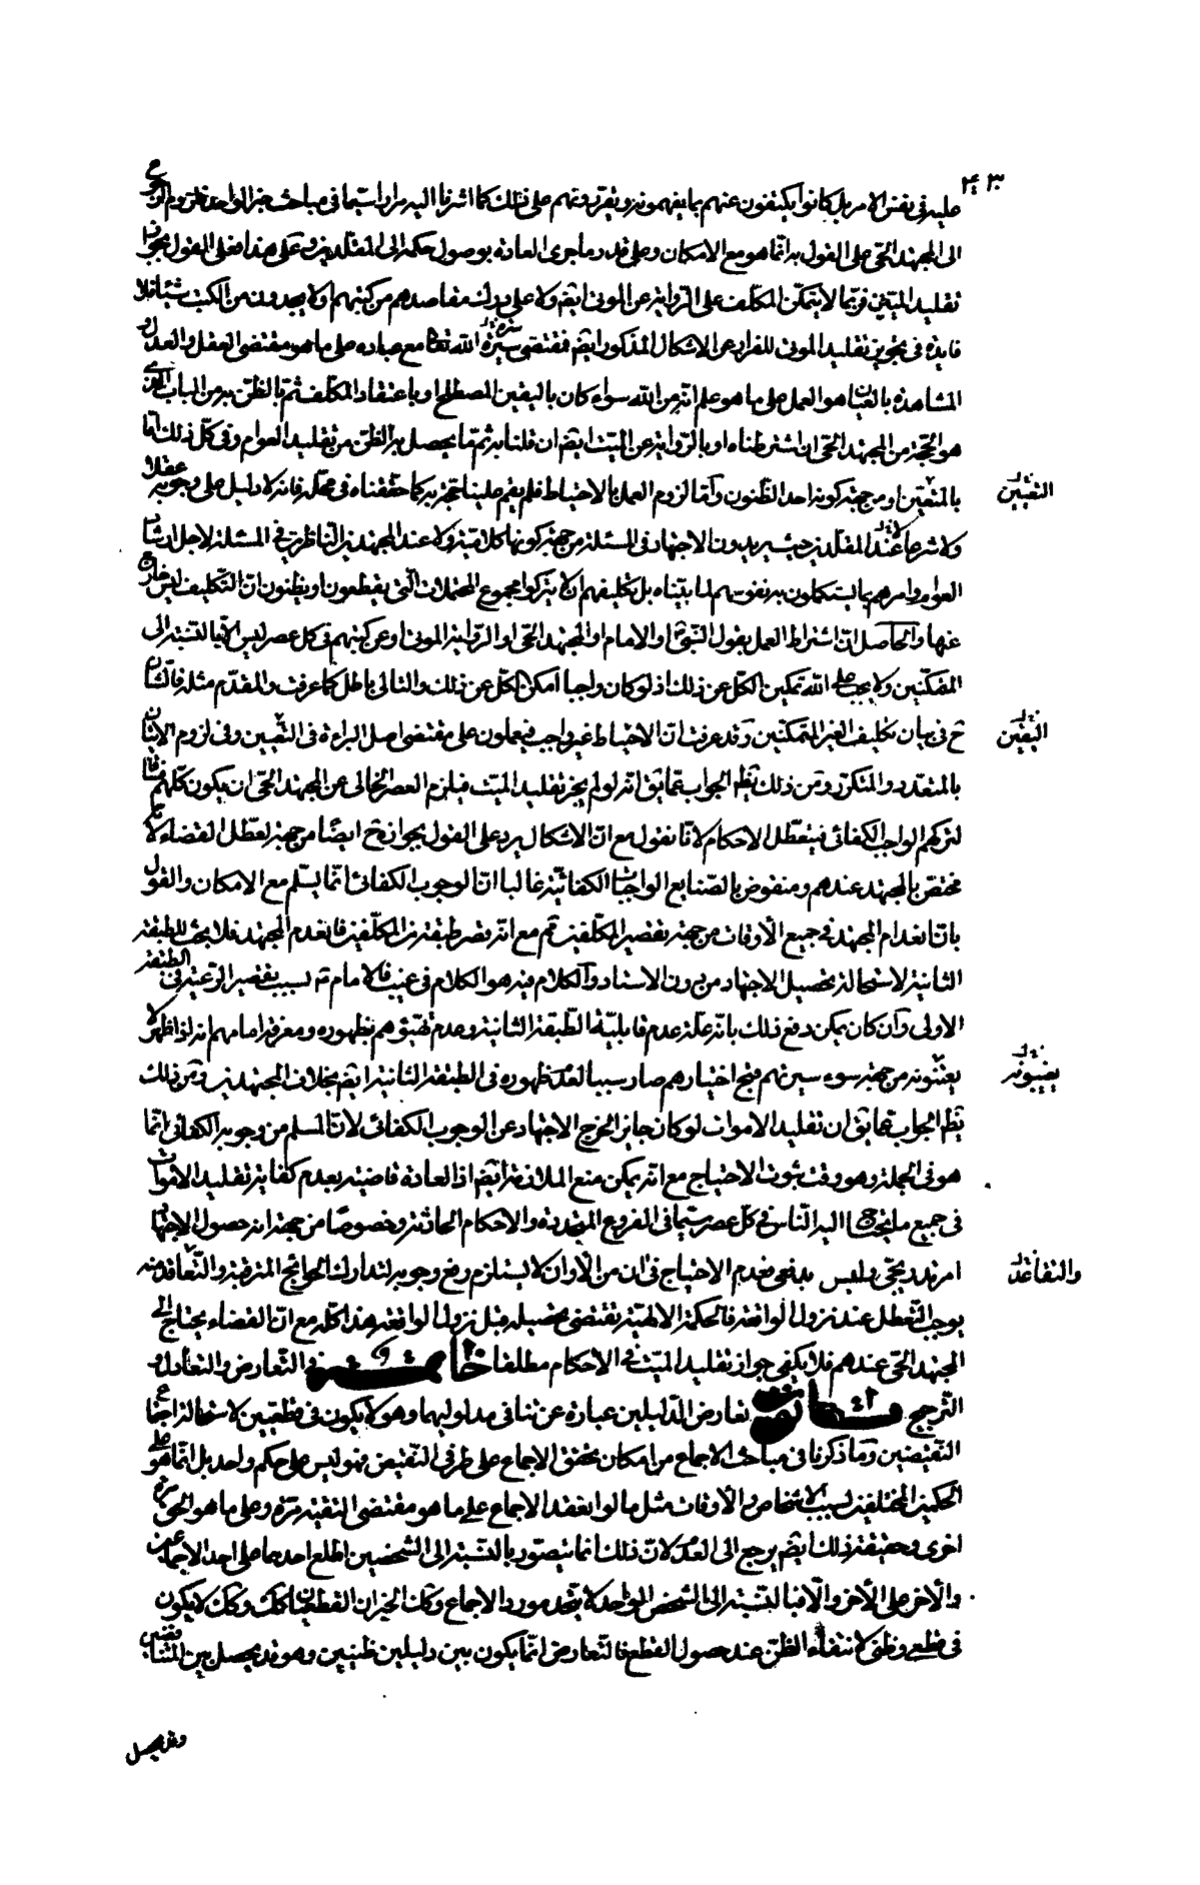 عليه في نفس الامر بل كانوا يكتفون عنهم بما يفهمونه ويقررونهم على ذلك كما اشرنا اليه مرارا سيما في مباحث خبر الواحد فلزوم الرجوع
الى المجتهد الحي على القول به انما هو مع الامكان وعلى قدر ما جرى العادة بوصول حكمه الى المقلدين وعلى هذا فعلى القول بجواز
تقليد الميت فربما لا يتمكن المكلف على الرواية عن الموتى ايضا ولا على درك مقاصدهم من كتبهم او لا يجدون من الكتب شيئا فلا
فايدة في تجويز تقليد الموتى للفرار عن الاشكال المذكور ايضم فمقتضى سيرة الله تعا مع عباده على ما هو مقتضى العقل والعدل و
المشاهدة بالعيان هو العمل على ما هو علم انه من الله سواء كان باليقين المصطلح او باعتقاد المكلف ثم بالظن به من الباب الذي
هو الحجة من المجتهد الحي ان اشترطناه او بالرواية عن الميت ايضم ان قلنا به ثم ما يحصل به الظن من تقليد العوام وفي كل ذلك اما
بالمتعين او من جهة كونه احد الظنون واما لزوم العمل بالاحتياط فلم يقم علينا حجة به كما حققناه في محله فانه لا دليل على وجوبه عقلا
ولا شرعا لا عند المقلدين حيث يريدون الاجتهاد في المسئلة من جهة كونها كلامية ولا عند المجتهدين الناظرين في المسئلة لاجل ارشاد
العوام وامرهم بما يستكملون به نفوسهم لما بيناه بل تكليفهم ان لا يتركوا مجموع المحتملات التي يقطعون او يظنون ان التكليف ليس خارج
عنها والحاصل ان اشتراط العمل بقول النبي ص او الامام او المجتهد الحي او الرواية الموتى او عن كتبهم في كل عصر ليس الا بالنسبة الى
المتمكنين ولا يجب على الله تمكين الكل عن ذلك اذ لو كان واجبا لامكن الكل عن ذلك والتالي باطل كما عرفت والمقدم مثله فالشان
ح في بيان تكليف الغير المتمكنين وقد عرفت ان الاحتياط غير واجب فيعملون على مقتضى اصل البراءة في التعيين وفي لزوم الاتيان
بالمتعدد والمتكرر ومن ذلك يظهر الجواب عما يق انه لو لم يجز تقليد الميت فيلزم العصر الخالي عن المجتهد الحي ان يكون كلهم فساقا
لتركهم الواجب الكفائي فيتعطل الاحكام لانا نقول مع ان الاشكال يرد على القول بجوازه ح ايضا من جهة تعطل القضاء لانه
مختص بالمجتهد عندهم ومنقوض بالصنايع الواجبات الكفائية غالبا ان الوجوب الكفائي انما يسلم مع الامكان والقول
بان انعدام المجتهد في جميع الأوقات من جهة تقصير المكلفين ثم مع انه قصر طبقة من المكلفين فانعدم المجتهد فلا يجب للطبقة
الثانية لاستحالة تحصيل الاجتهاد من دون الاستاد والكلام فيه هو الكلام في غيبة الامام ع بسبب تقصير الرعية في الطبقة
الاولى وان كان يمكن دفع ذلك بانه علة عدم قابلية الطبقة الثانية وعدم تهيؤهم لظهوره ومعرفة امامهم انه اذا ظهر لا
يعينونه من جهة سوء سيرتهم فنج اختيارهم صار سببا لعدم ظهوره في الطبقة الثانية ايضم بخلاف المجتهدين ومن ذلك
يظهر الجواب عما يق ان تقليد الاموات لو كان جايزا لخرج الاجتهاد عن الوجوب الكفائي لان المسلم من وجوبه الكفائي انما
هو في الجملة وهو وقت ثبوت الاحتياج مع انه يمكن منع الملازمة ايضم اذ العادة قاضية بعدم كفاية تقليد الاموات
في جميع ما يحتاج اليه الناس في كل عصر سيما في الفروع المتجددة والاحكام الحادثة وخصوصا من جهة انه حصول الاجتهاد
امر تدريجي وليس بدفعي فعدم الاحتياج في آن من الأوان لا يستلزم رفع وجوبه لتدارك الحوائج المترقبة والتقاعد منه
يوجب التعطل عند نزول الواقعة فالحكمة الالهية تقتضى تحصيله قبل نزول الواقعة هذا كله مع ان القضاء يحتاج الى
المجتهد الحي عندهم فلا يكفي جواز تقليد الميت في الاحكام مطلقا خاتمة في التعارض والتعادل و
الترجيح قانون تعارض الدليلين عبارة عن تنافى مدلوليهما وهو لا يكون في قطعيين لاستحالة اجتماع
النقيضين وما ذكرنا في مباحث الاجماع من امكان تحقق الاجماع على طرفي النقيض فهو ليس على حكم واحد بل انما هو على
الحكمين المختلفين بسبب الاشخاص والأوقات مثل ما لو انعقد الاجماع على ما هو مقتضى التقية مرة وعلى ما هو الحق مرة
اخرى وحقيقة ذلك ايضم يرجع الى العدم لان ذلك انما يتصور بالنسبة الى الشخصين اطلع احدهما على احد الاجماعين
والأخر على الأخر والا فبالنسبة الى الشخص الواحد لا يتحد مورد الاجماع وكك الخبران القطعيان كك وكك لا يكون
في قطعي وظني لانتفاء الظن عند حصول القطع فالتعارض انما يكون بين دليلين ظنيين وهو قد يحصل بين المتناقضين
التعيين
اليقين
والتقاعد
وقد يحصل